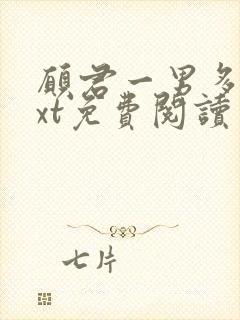 顧君一男多
xt免費閱讀
七片